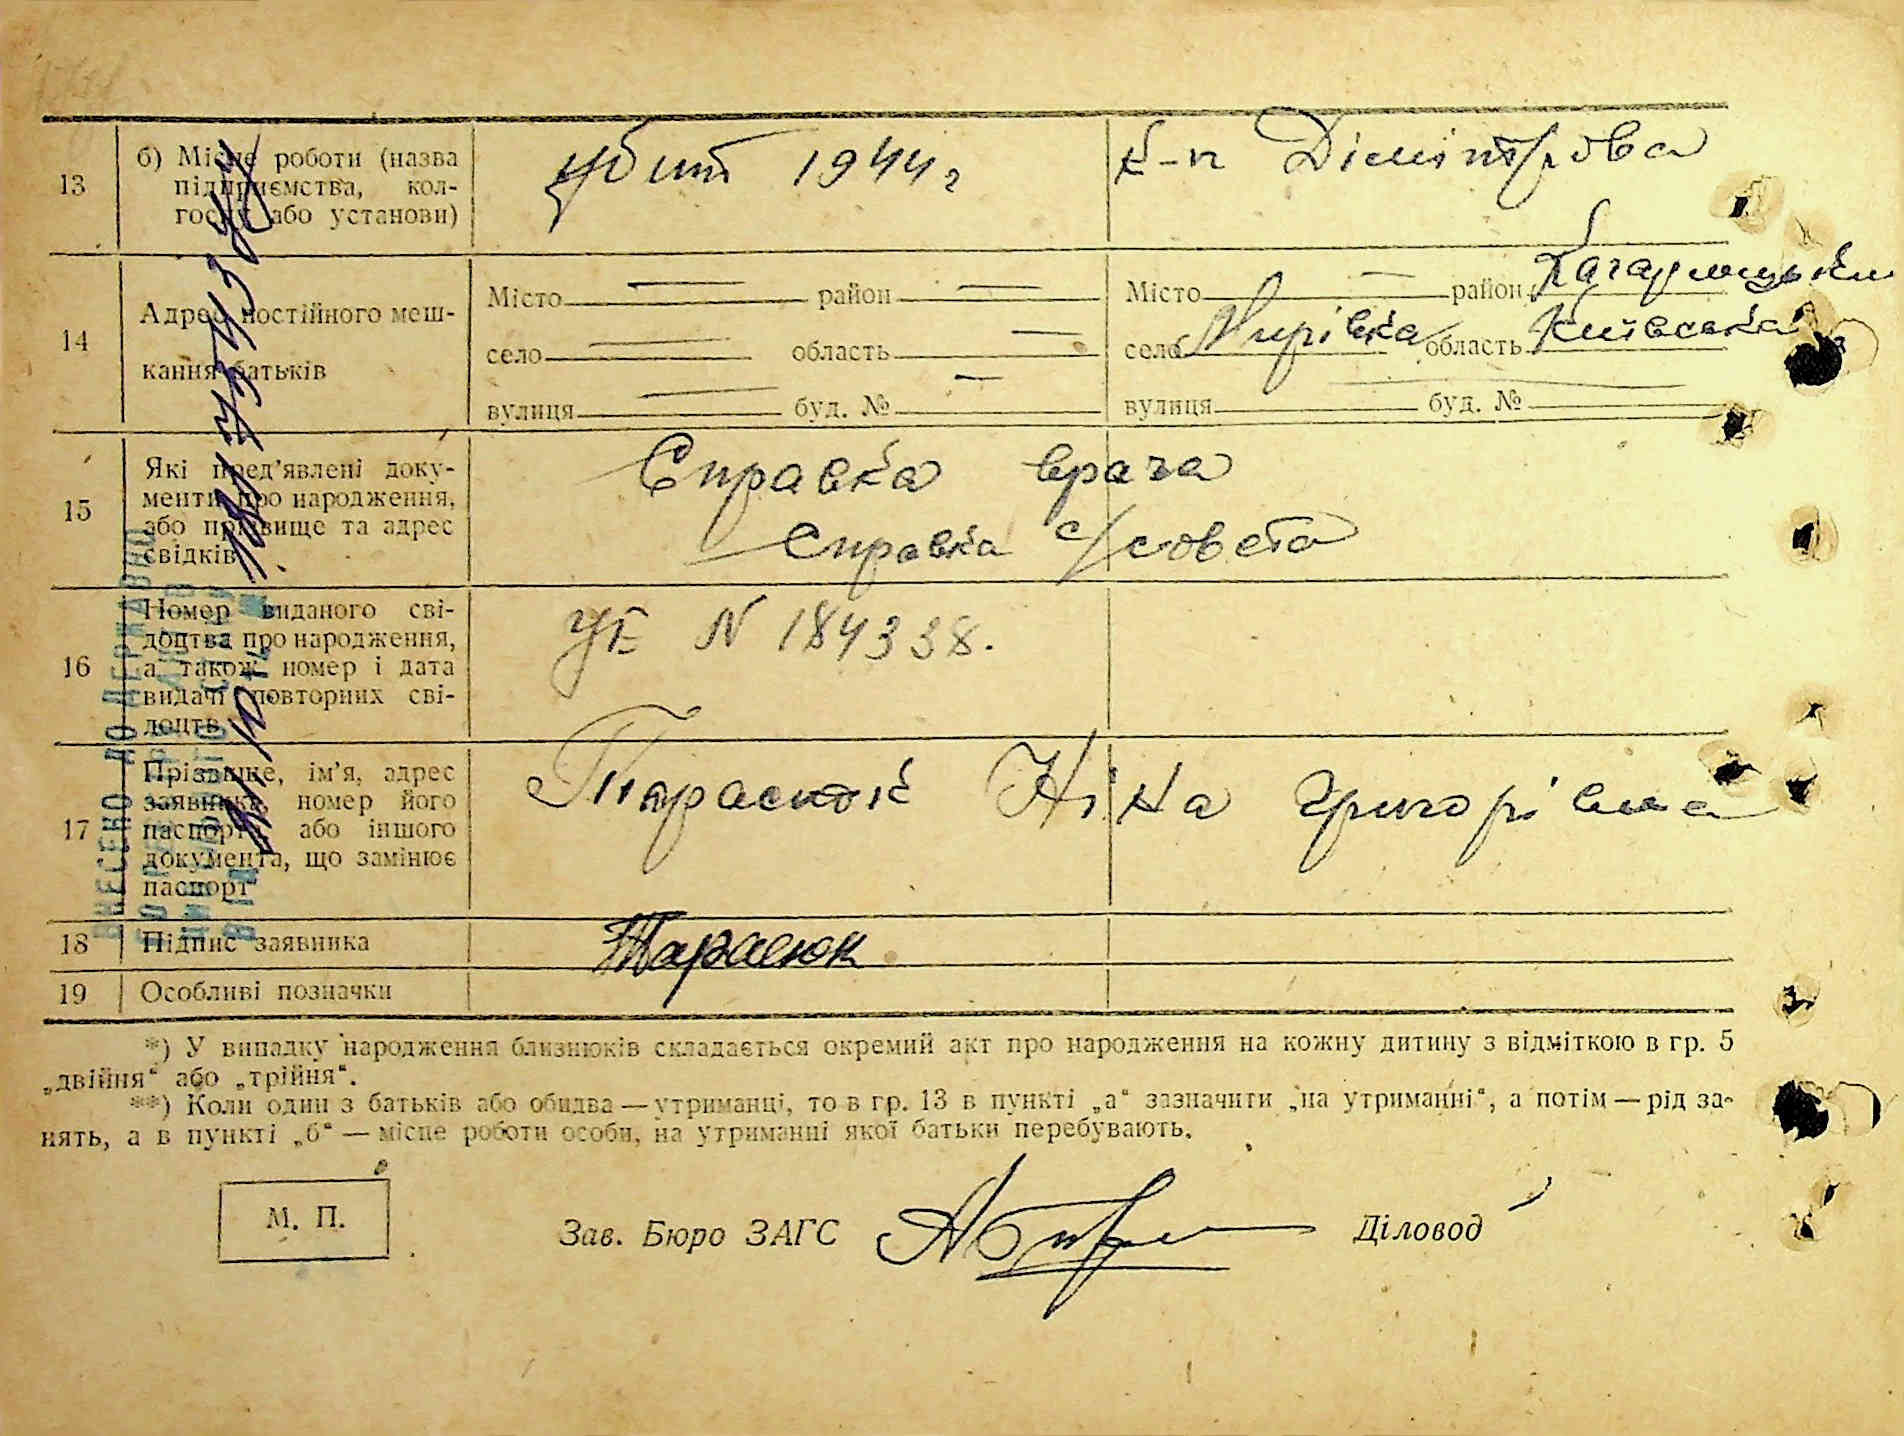 13
б) Місце роботи (назва
підприємства, кол-
госпу або установи)
убит 1944 г
к-п Дімітрова
14
Адрес постійного меш-
кання батьків
Місто район
село область
вулиця буд. №
Місто район Кагарлицький
село область Київська
вулиця буд. №
15
Які пред’явлені доку-
менти про народження,
або прізвище та адрес
свідків
Справка врача
Справка с/совета
16
Номер виданого сві-
доцтва про народження,
а також номер і дата
видачі повторних сві-
доцтв
УЕ N 184338.
17
Прізвище, ім’я, адрес
заявника, номер його
паспорту, або іншого
документа, що замінює
паспорт
Тарасюк Ніна Григорівна
18
Підпис заявника
Тарасюк
19
Особливі позначки
*) У випадку народження близнюків складається окремий акт про народження на кожну дитину з відміткою в гр. 5
„двійня“ або „трійня“.
**) Коли один з батьків або обидва — утриманці, то в гр. 13 в пункті „а“ зазначити „на утриманні“, а потім — рід за-
нять, а в пункті „б“ — місце роботи особи, на утриманні якої батьки перебувають.
М. П.
Зав. Бюро ЗАГС
Діловод
ВНЕСЕНО ДО ДЕРЖАВНО